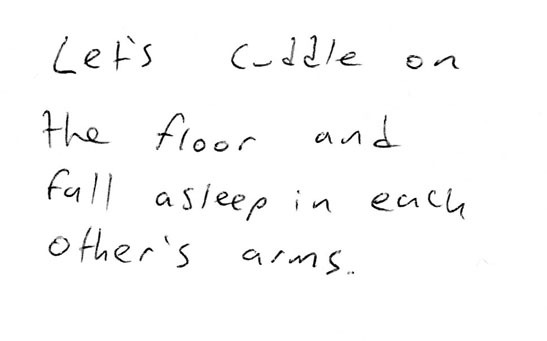 Let's cuddle on
the floor and
fall asleep in each
other's arms.